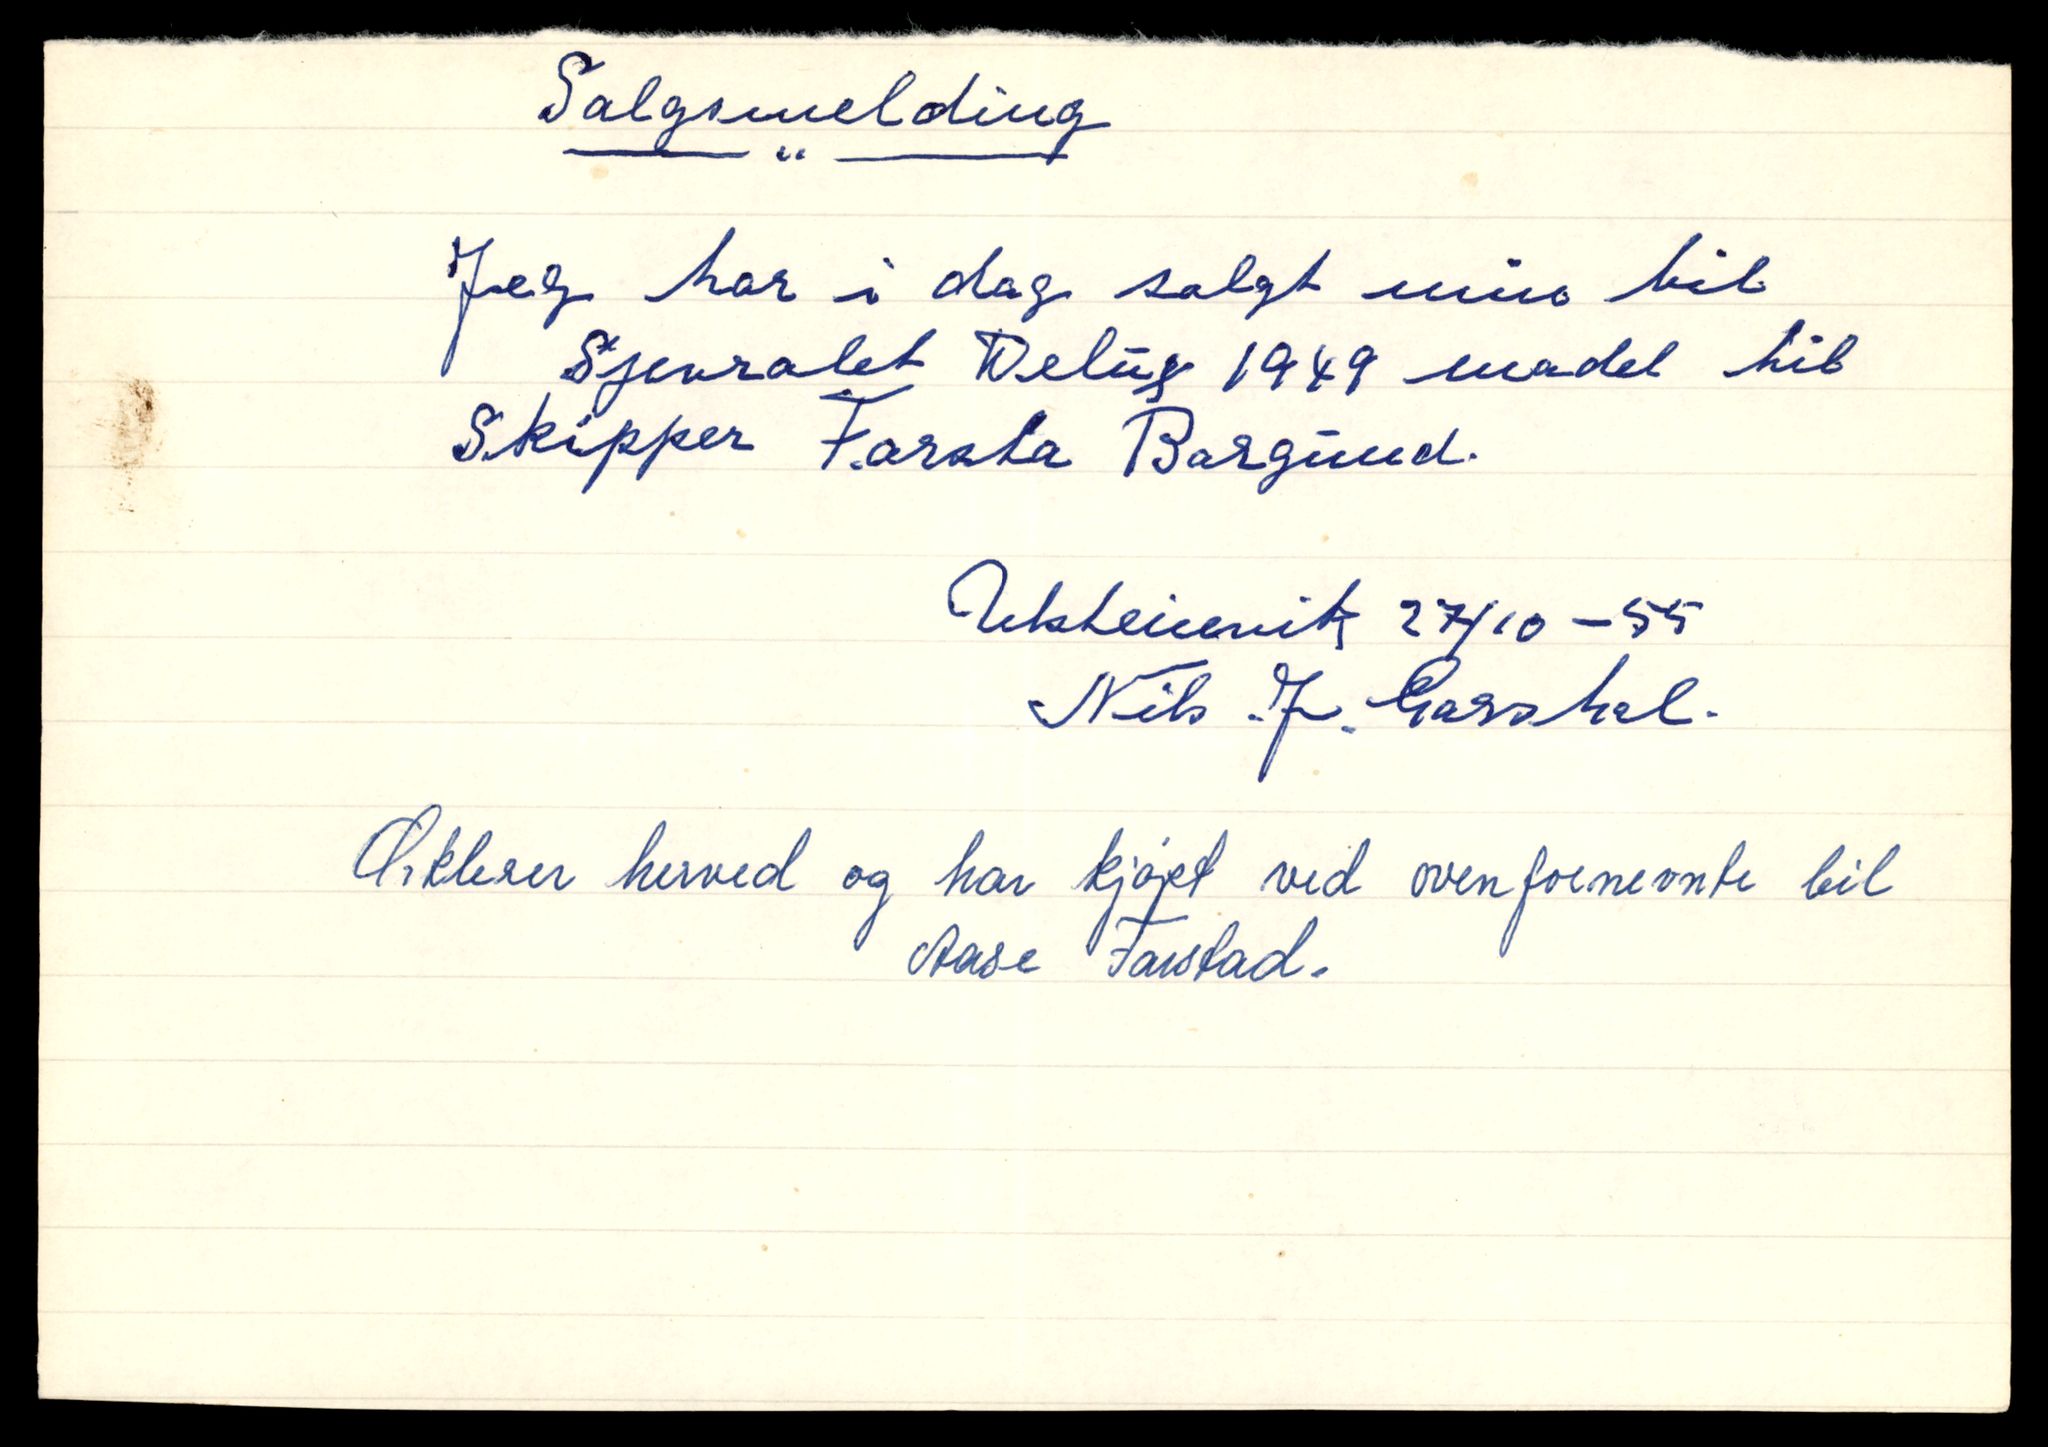 Salgsmelding
Jeg har i dag solgt min bil
Sjevralet Delüx 1949 madel til
Skipper Farsta Borgund.
Ulsteinvik 27/10-55
Nils J. Garshol.
herved og har kjøpt ved ovenfornevnte bil
Aase Farstad.